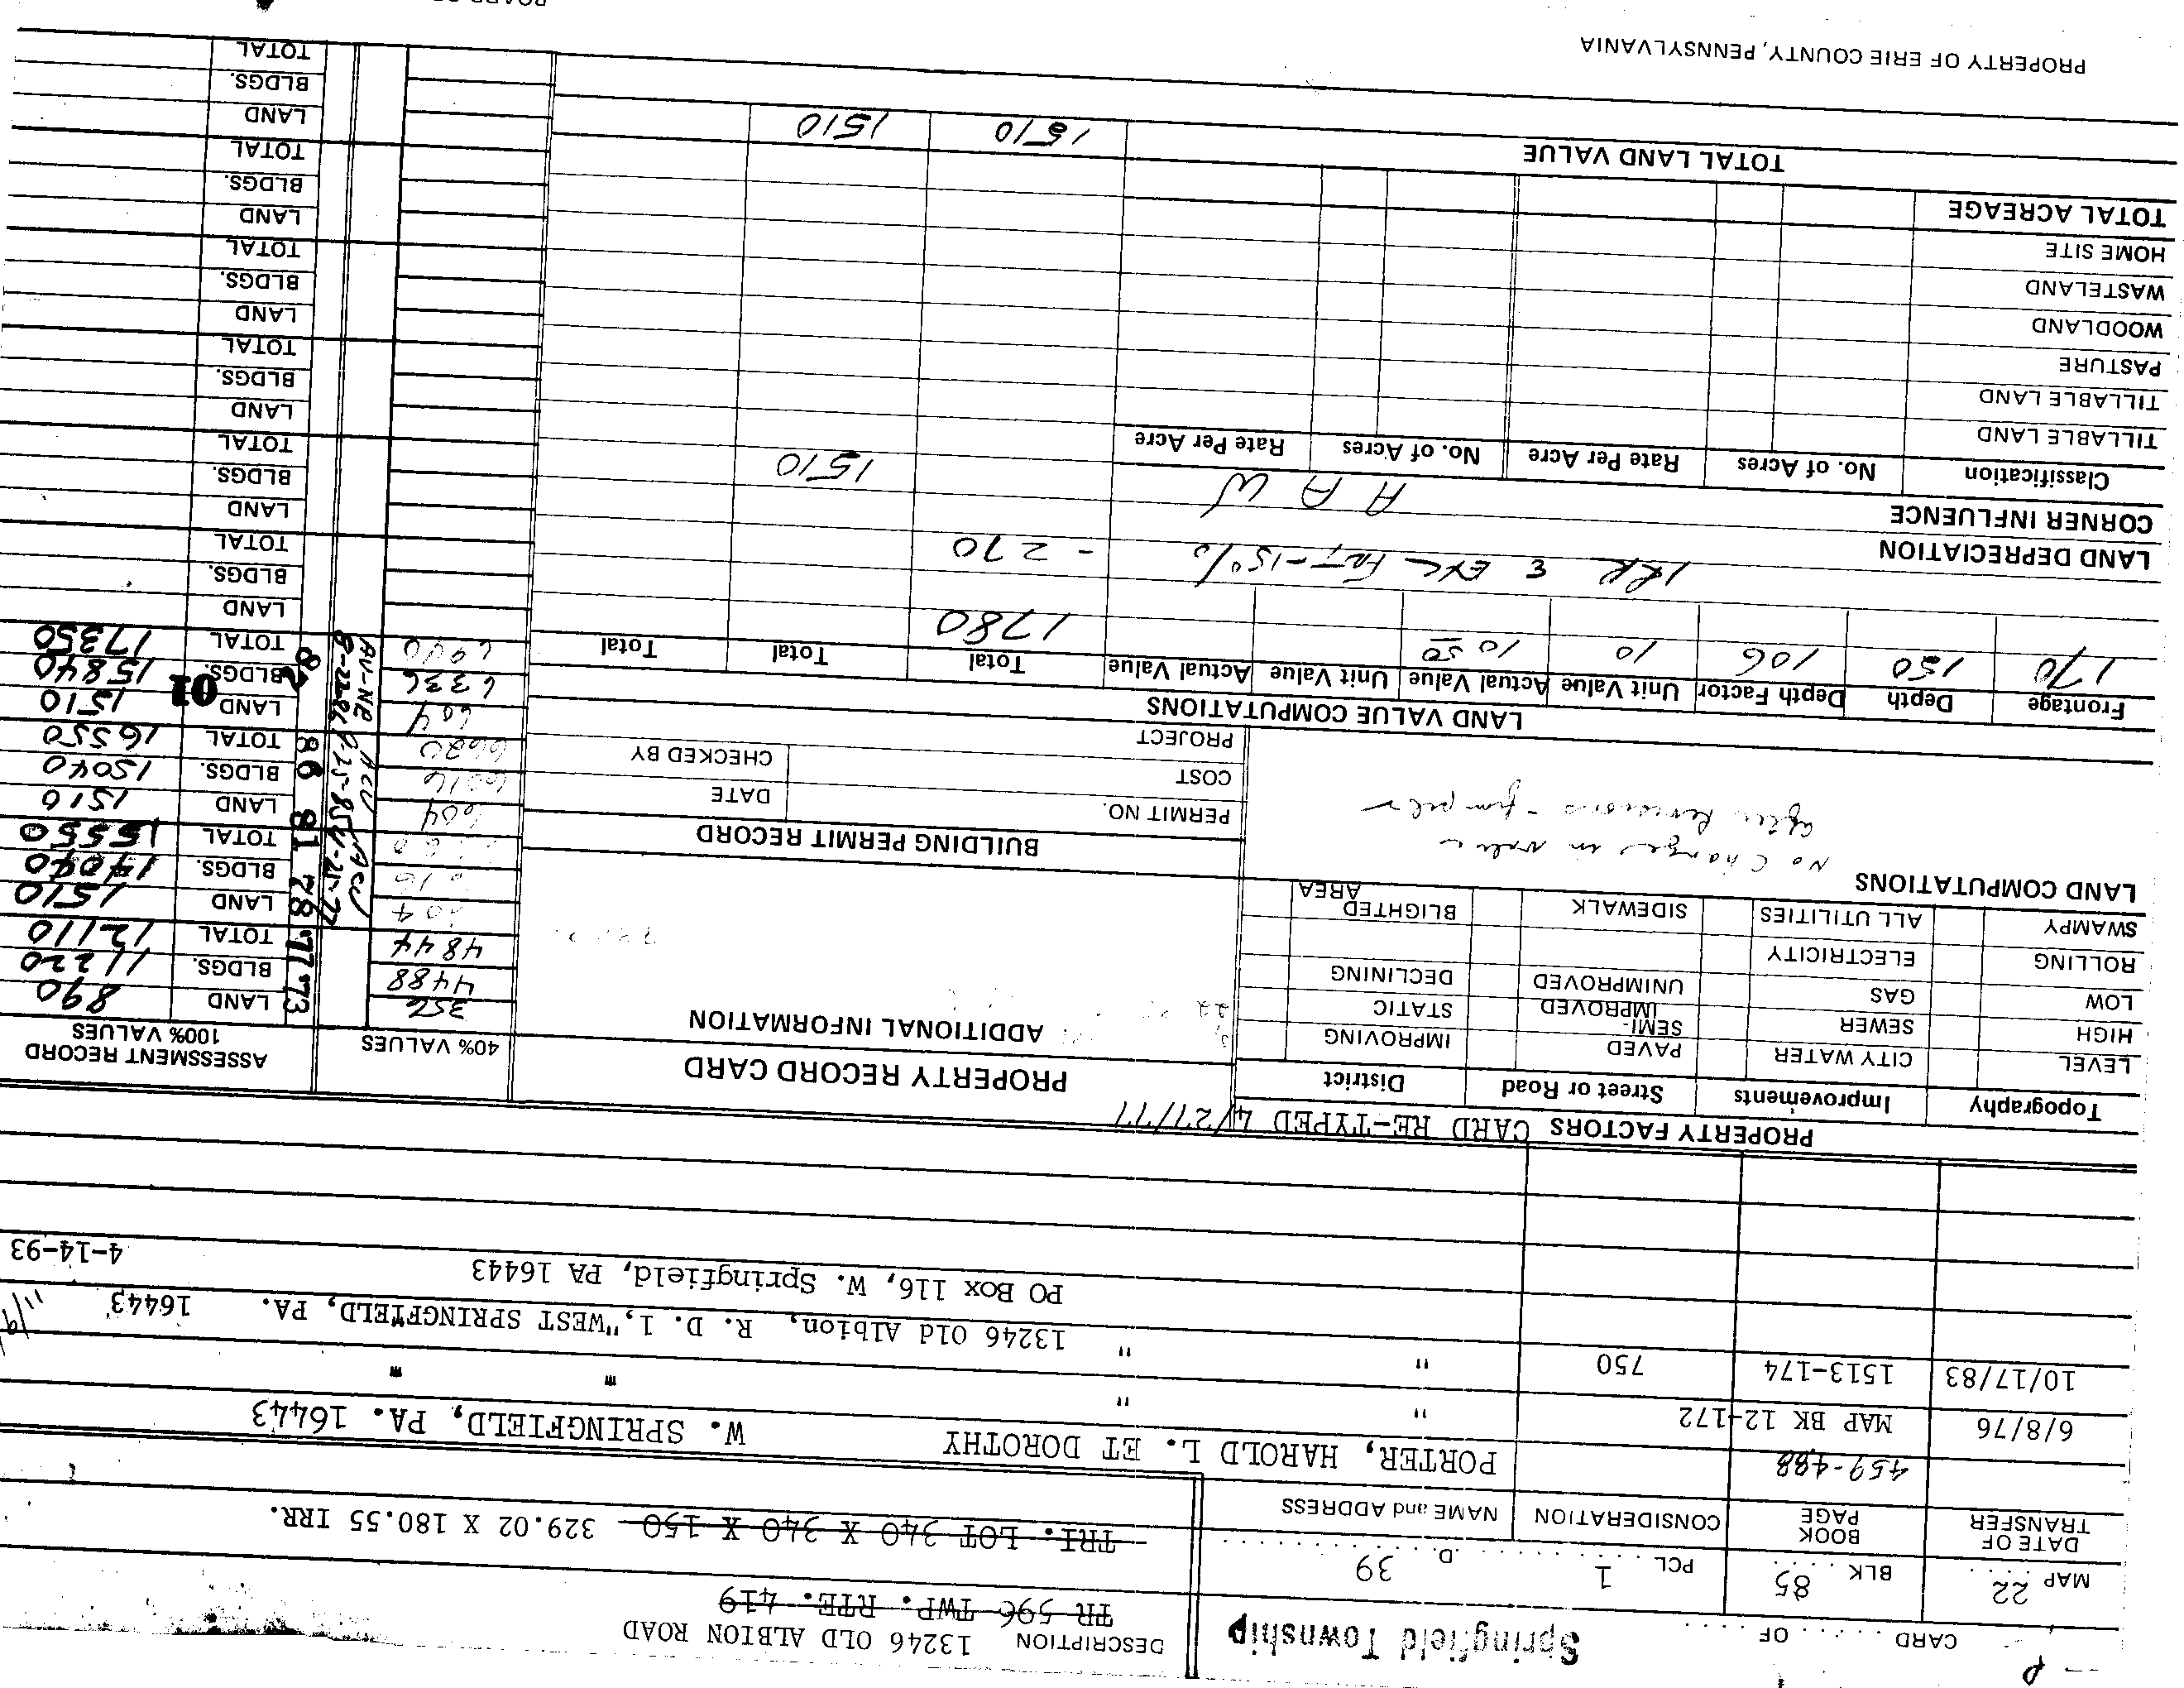 CARD ...... OF ......
Springfield Township
DESCRIPTION 13246 OLD ALBION ROAD
TR 596 TWP. RTE. 419
MAP 22 BLK 85 PCL 1 D 39
TRI. LOT 340 X 340 X 150 329.02 X 180.55 IRR.
DATE OF TRANSFER BOOK PAGE CONSIDERATION NAME and ADDRESS
459-488 PORTER, HAROLD L. ET DOROTHY W. SPRINGFIELD, PA. 16443
6/8/76 MAP BK 12-172 " " " "
10/17/83 1513-174 750 " "
13246 Old Albion, R. D. 1, "WEST SPRINGFIELD, PA. 16443
PO Box 116, W. Springfield, PA 16443 4-14-93
PROPERTY FACTORS CARD RE-TYPED 4/27/77
Topography Improvements Street or Road District
LEVEL CITY WATER PAVED IMPROVING
HIGH SEWER SEMI-IMPROVED STATIC
LOW GAS UNIMPROVED DECLINING
ROLLING ELECTRICITY
SWAMPY ALL UTILITIES SIDEWALK BLIGHTED AREA
PROPERTY RECORD CARD
ADDITIONAL INFORMATION
LAND COMPUTATIONS
No Change in value
after revisions -
BUILDING PERMIT RECORD
PERMIT NO. DATE
COST CHECKED BY
PROJECT
LAND VALUE COMPUTATIONS
Frontage Depth Depth Factor Unit Value Actual Value Unit Value Actual Value Total Total Total
170 150 106 10 10 50 1780
LAND DEPRECIATION IRR & EXC Fnt-15% - 270
CORNER INFLUENCE A A W 1510
Classification No. of Acres Rate Per Acre No. of Acres Rate Per Acre
TILLABLE LAND
TILLABLE LAND
PASTURE
WOODLAND
WASTELAND
HOME SITE
TOTAL ACREAGE
TOTAL LAND VALUE 1510 1510
PROPERTY OF ERIE COUNTY, PENNSYLVANIA
40% VALUES
ASSESSMENT RECORD
100% VALUES
356 73 LAND 890
4488 77 BLDGS. 11220
4844 TOTAL 12110
78 LAND 1510
BLDGS. 14040
81 TOTAL 15550
604 LAND 1510
6016 86 BLDGS. 15040
6620 TOTAL 16550
604 LAND 01 1510
6336 87 BLDGS. 15840
6940 TOTAL 17350
LAND
BLDGS.
TOTAL
LAND
BLDGS.
TOTAL
LAND
BLDGS.
TOTAL
LAND
BLDGS.
TOTAL
LAND
BLDGS.
TOTAL
LAND
BLDGS.
TOTAL